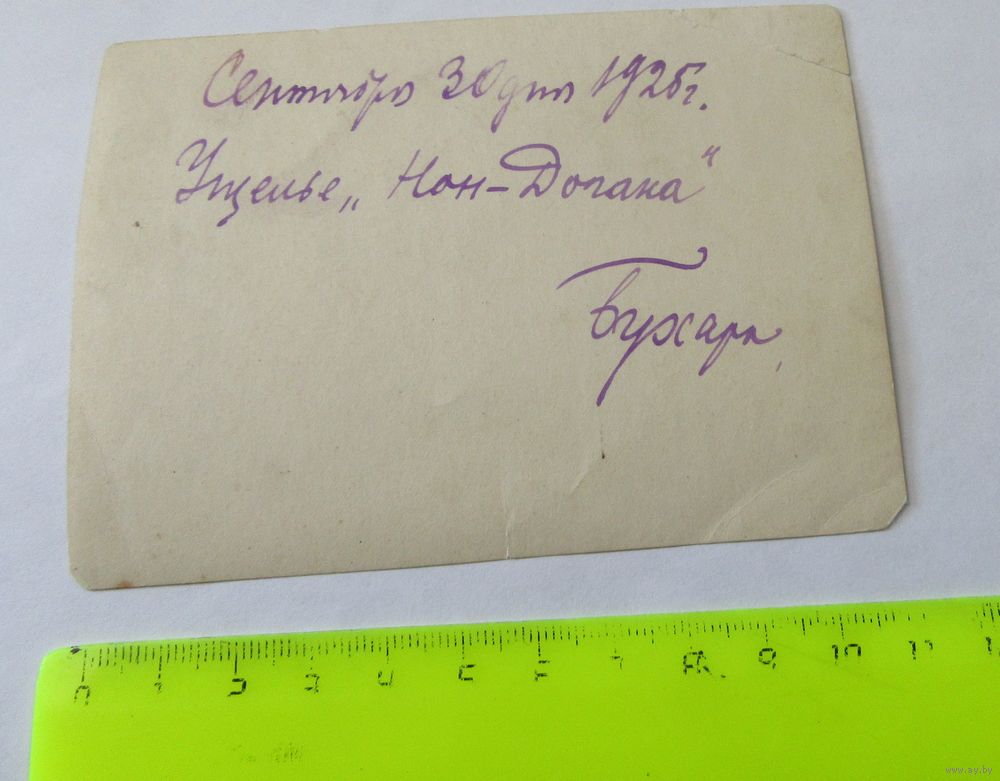 Сентября 30 дня 1925г.
Ущелье „Нон-Догана“
Бухара
0 1 2 3 4 5 6 7 8 9 10 11
www.ay.by